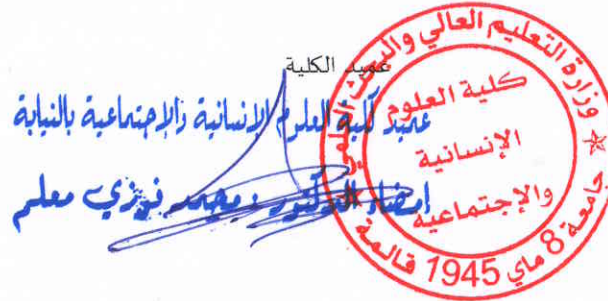 عميد الكلية
عميد كلية العلوم الانسانية والاجتماعية بالنيابة
إمضاء الدكتور: محمد فوزي معلم
وزارة التعليم العالي والبحث العلمي
كلية العلوم
الإنسانية
والإجتماعية
جامعة 8 ماي 1945 قالمة